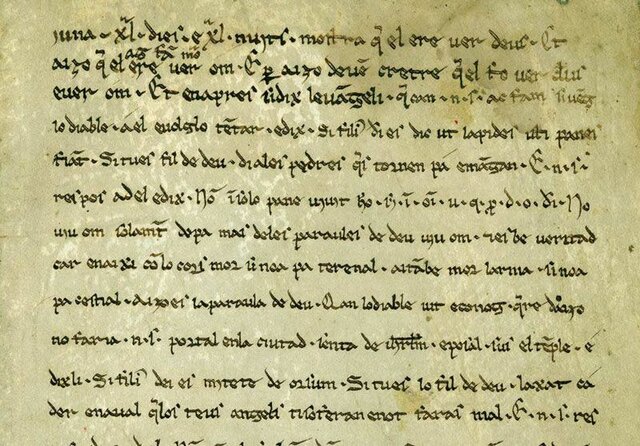 iuna · xl̄ · dies · e xl̄ · nuits · mostra q̄ el ere ver deus · Et
ag fā
aizo q̄ el ere ver om · E ꝑ aizo deuē creire q̄el fo ver deus
e ver om · Et enapres dix levāgeli · q̄ can · n · s · ac fam
lo diable · a el e uolglo tētar · e dix · Si fili' dī es dic ut lapides isti panes
fiāt · Si tu es fil de deu · di a les pedres q̄s tornen pa e māgan · E · n · s ·
respos ad el e dix · Nō ī solo pane uiuit hō · s · ī · oī · u · q · ꝑ · d · o · dī · No
uiu om solamt̄ de pa mas de les paraules de deu uiu om · i es be veritad
car enaixi cō lo cors mor si no a pa terenal · aitābe mor larma · si no a
pa celstial · Aizo es la paraula de deu · Qan lo diable uit e conog · q̄re
no faria · n · s · portal en la ciutad · senta de · e poial · sus el tēple · e
dixli · Si fili' dei es mitete deorsum · Si tu es lo fil de deu · laxat ca
der en aual q̄ los teus angels ti soferan e not faras mal · E · n · s · res